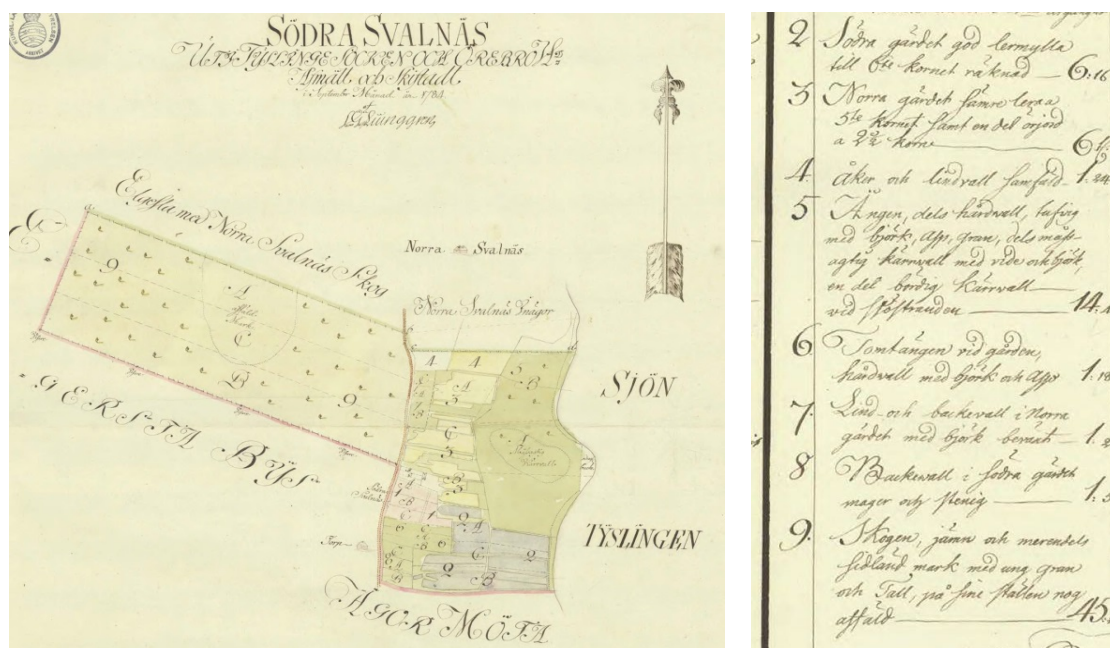 SÖDRA SVALNÄS
UTI TYSLINGE SOCKEN OCH ÖREBRO
Afmätt och Skiftadt
i September Månad år 1784
af
Ljunggren
Norra Svalnäs Skog
Norra Svalnäs
Norra Svalnäs Ägor
SJÖN
TYSLINGEN
GERSTA BYS
ÄGOR MÖTA
Torp
9
A
C
B
9
4 4
5
B
A
C
3
A
3
1
2
A
C
2
2
B
2 Södra gärdet god lermylla
till 6te kornet räknad — 6:16
3 Norra gärdet sämre lera a
5te kornet samt en del örjord
a 2½ korn — 6
4 Åker och lindvall samfäld — 1:24
5 Ängen, dels hårdvall, tufvig
med björk, asp, gran, dels måss-
agtig kärrvall med vide och björk,
en del bördig kärrvall —
vid sjöstranden — 14:
6 Tomtängen vid gården,
hårdvall med björk och asp 1:18
7. Lind- och backevall i Norra
gärdet med björk bevuxit — 1:
8 Backevall i södra gärdet
mager och stenig — 1:5
9. Skogen, jämn och merendels
sidländ mark med ung gran
och Tall, på sine ställen nog
affäld — 45.